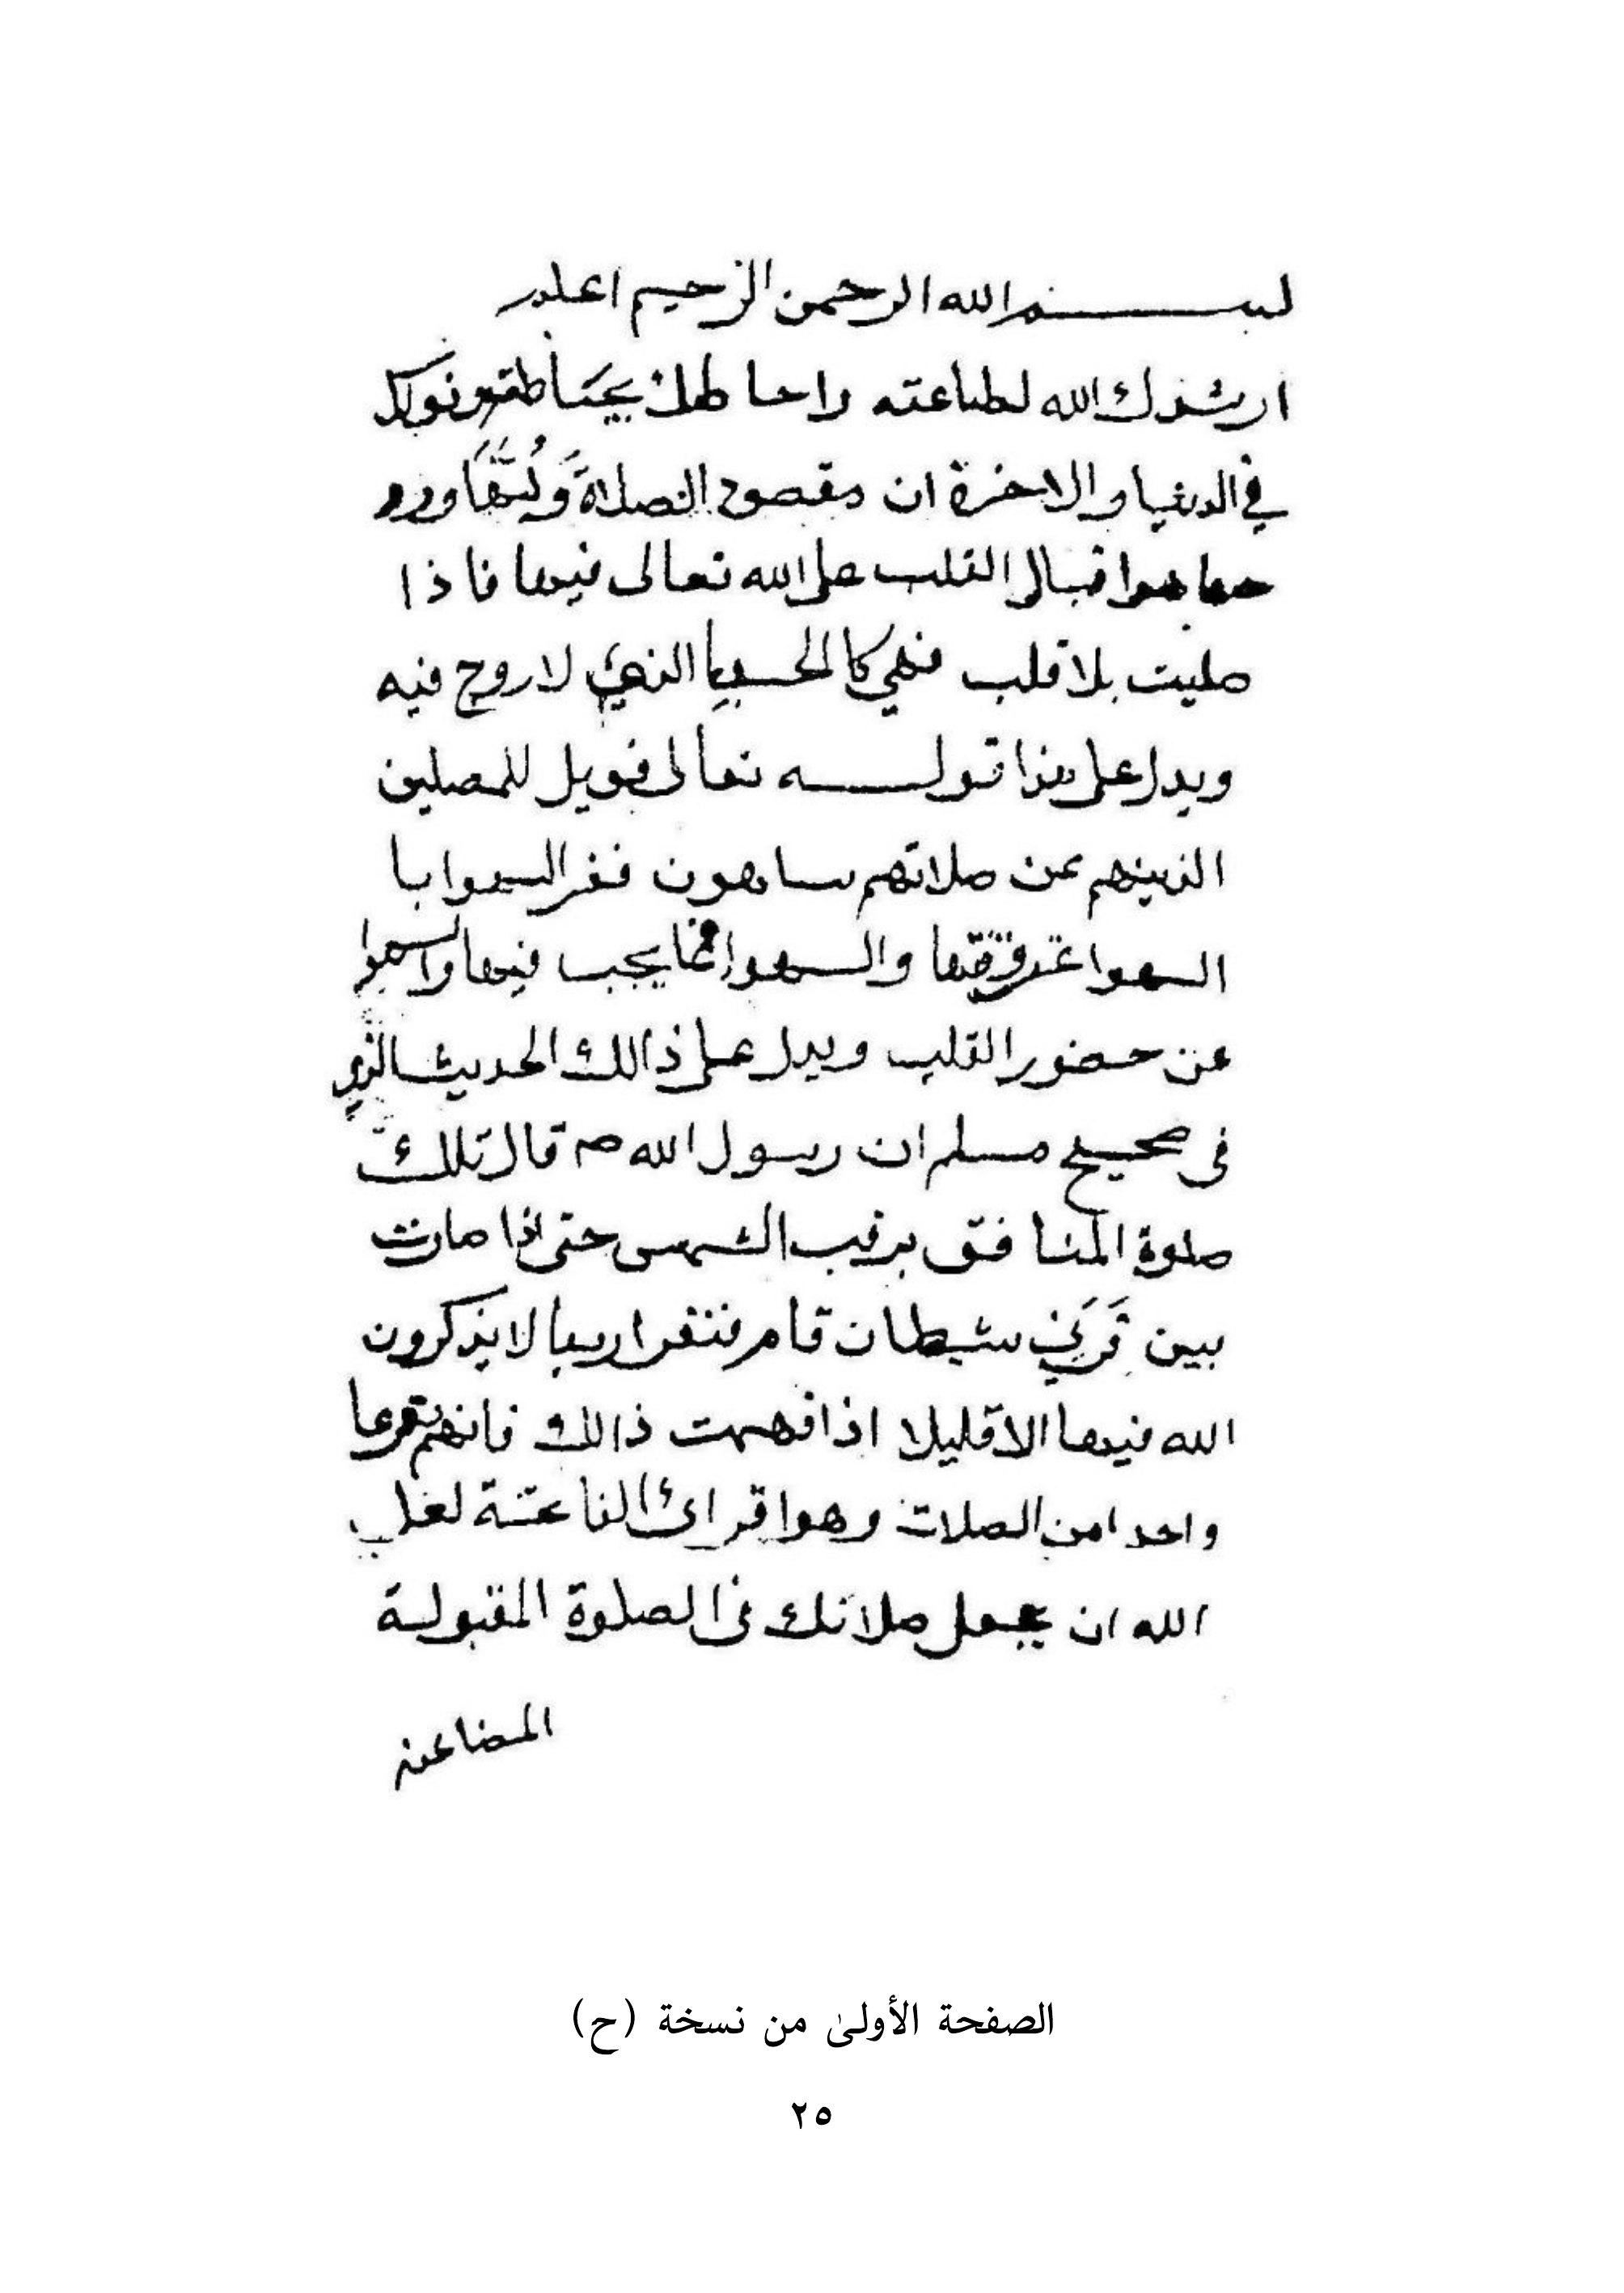 بسم الله الرحمن الرحيم اعلم
ارشدك الله لطاعته واحاطك بحياطته وتولاك
في الدنيا والاخرة ان مقصود الصلاة ولبها ورو
حها هوا قبال القلب على الله تعالى فيها فاذا
صليت بلا قلب فهي كالجسد الذي لا روح فيه
ويدل على هذا قوله تعالى فويل للمصلين
الذينهم عن صلاتهم ساهون ففسر السهوا با
السهوا عن وقتها والسهوا عما يجب فيها والسهوا
عن حضور القلب ويدل على ذالك الحديث الذي
في صحيح مسلم ان رسول الله ص قال تلك
صلوة المنافق يرقب الشمس حتى اذا صارت
بين قرني شيطان قام فنقر اربعا لا يذكرون
الله فيها الا قليلا اذا فهمت ذالك فانهم
واحدا من الصلات وهوا قرائ الفاتحة لعل
الله ان يجعل صلاتك في الصلوة المقبولة
المضاعفة
الصفحة الأولىٰ من نسخة (ح)
٢٥